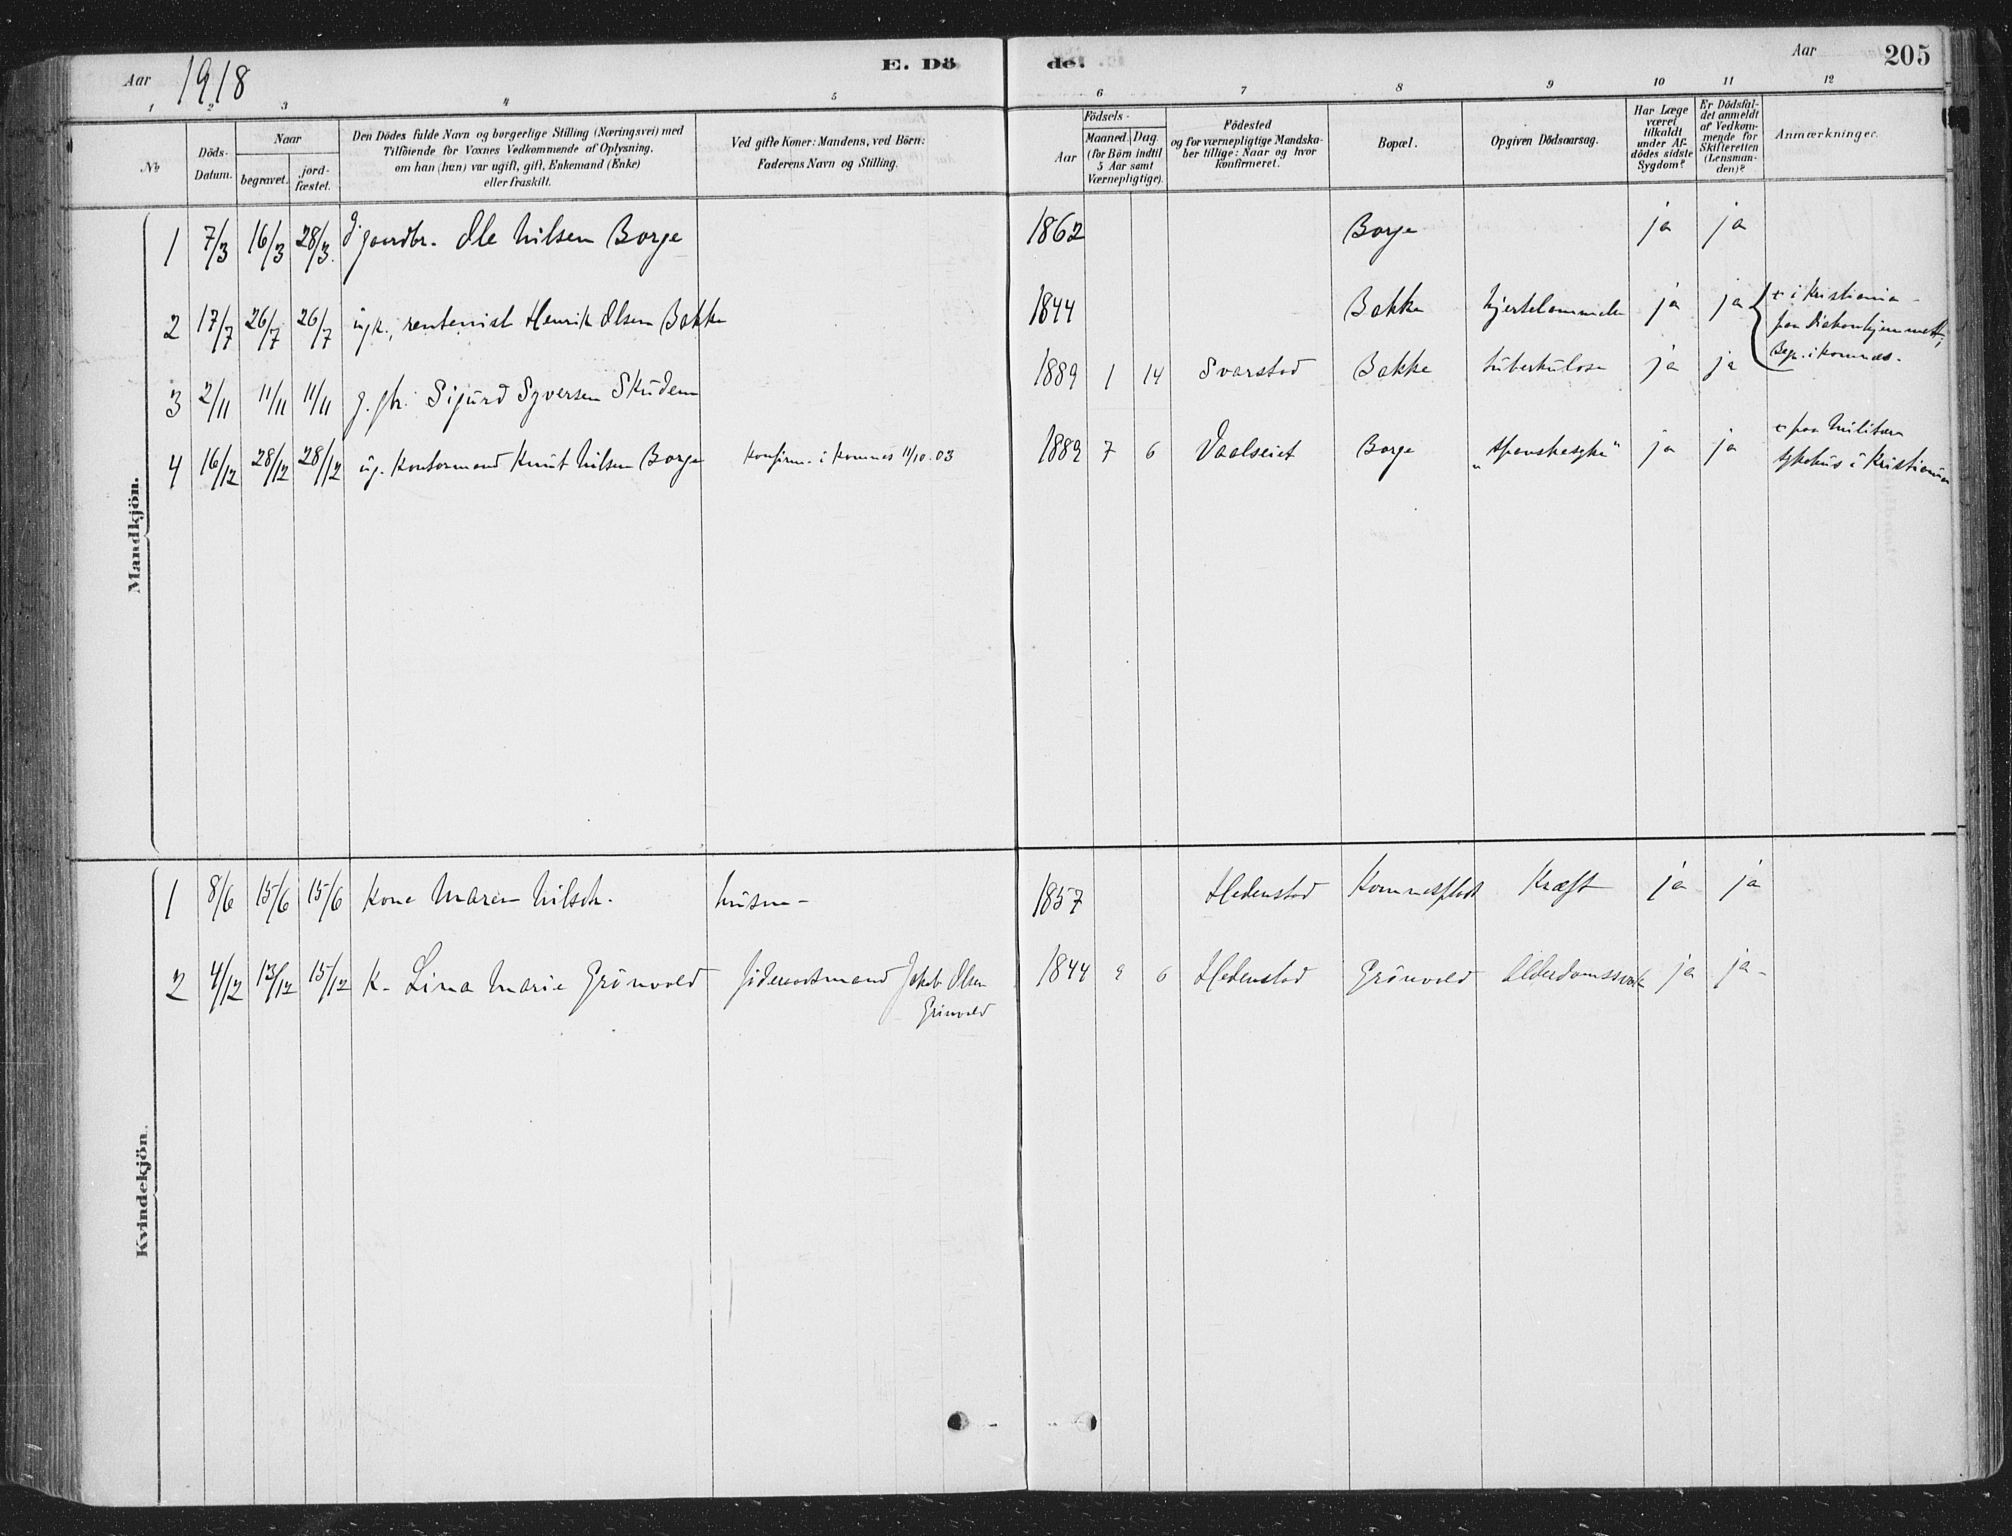 Aar 1918 E. Dö de. Aar 205
1 2 3 4 5 6 7 8 9 10 11 12
No
Döds-
Datum.
Naar
begravet.
jord-
fæstet.
Den Dödes fulde Navn og borgerlige Stilling (Næringsvei) med
Tilföiende for Voxnes Vedkommende af Oplysning,
om han (hun) var ugift, gift, Enkemand (Enke)
eller fraskilt.
Ved gifte Koner: Mandens, ved Börn:
Faderens Navn og Stilling.
Födsels-
Aar
Maaned. Dag
(for Börn indtil
5 Aar samt
Værnepligtige).
Födested
og for værnepligtige Mandska-
ber tillige: Naar og hvor
konfirmeret.
Bopæl.
Opgiven Dödsaarsag.
Har Læge
været
tilkaldt
under Af-
dödes sidste
Sygdom?
Er Dödsfal-
det anmeldt
af Vedkom-
mende for
Skifteretten
(Lensman-
den)?
Anmærkninger.
Mandkjön.
1 7/3 16/3 28/3 gaardbr. Ole Nilsen Borge 1862 Borge ja ja
2 17/7 26/7 26/7 rentenist Henrik Olsen Bakke 1844 Bakke hjertelammelse ja ja + i Kristiania -
paa Diakonhjemmet,
Begr. i Komnes.
3 2/11 11/11 11/11 Sigurd Syversen Skuden 1889 1 14 Svarstad Bakke tuberkulose ja ja
4 16/12 28/12 28/12 ug. Kontormand Knut Nilsen Borge Konfirm. i Komnes 11/10.03 1889 7 6 Vaalseiet Borge "spanskesyke" ja ja + paa Militær
sykehus i Kristiania
Kvindekjön.
1 8/6 15/6 15/6 Kone Maren Nilsdt. husm- 1857 Hedenstad Komnesplads Kræft ja ja
2 4/12 13/12 15/12 K. Lina Marie Grönvold föderaadsmand Jakob Olsen 1844 9 6 Hedenstad Grönvold Alderdomssvak ja ja-
Grönvold